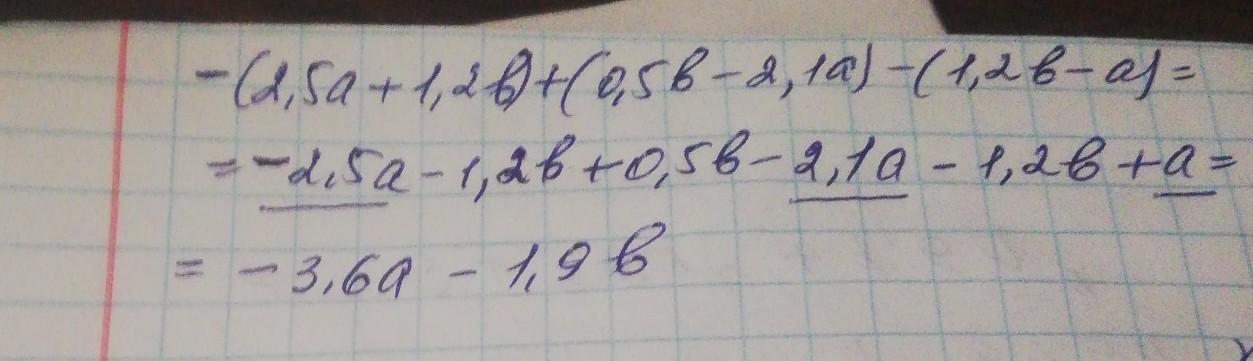 -(2,5a+1,2b)+(0,5b-2,1a)-(1,2b-a)=
=-2,5a-1,2b+0,5b-2,1a-1,2b+a=
=-3,6a-1,9b